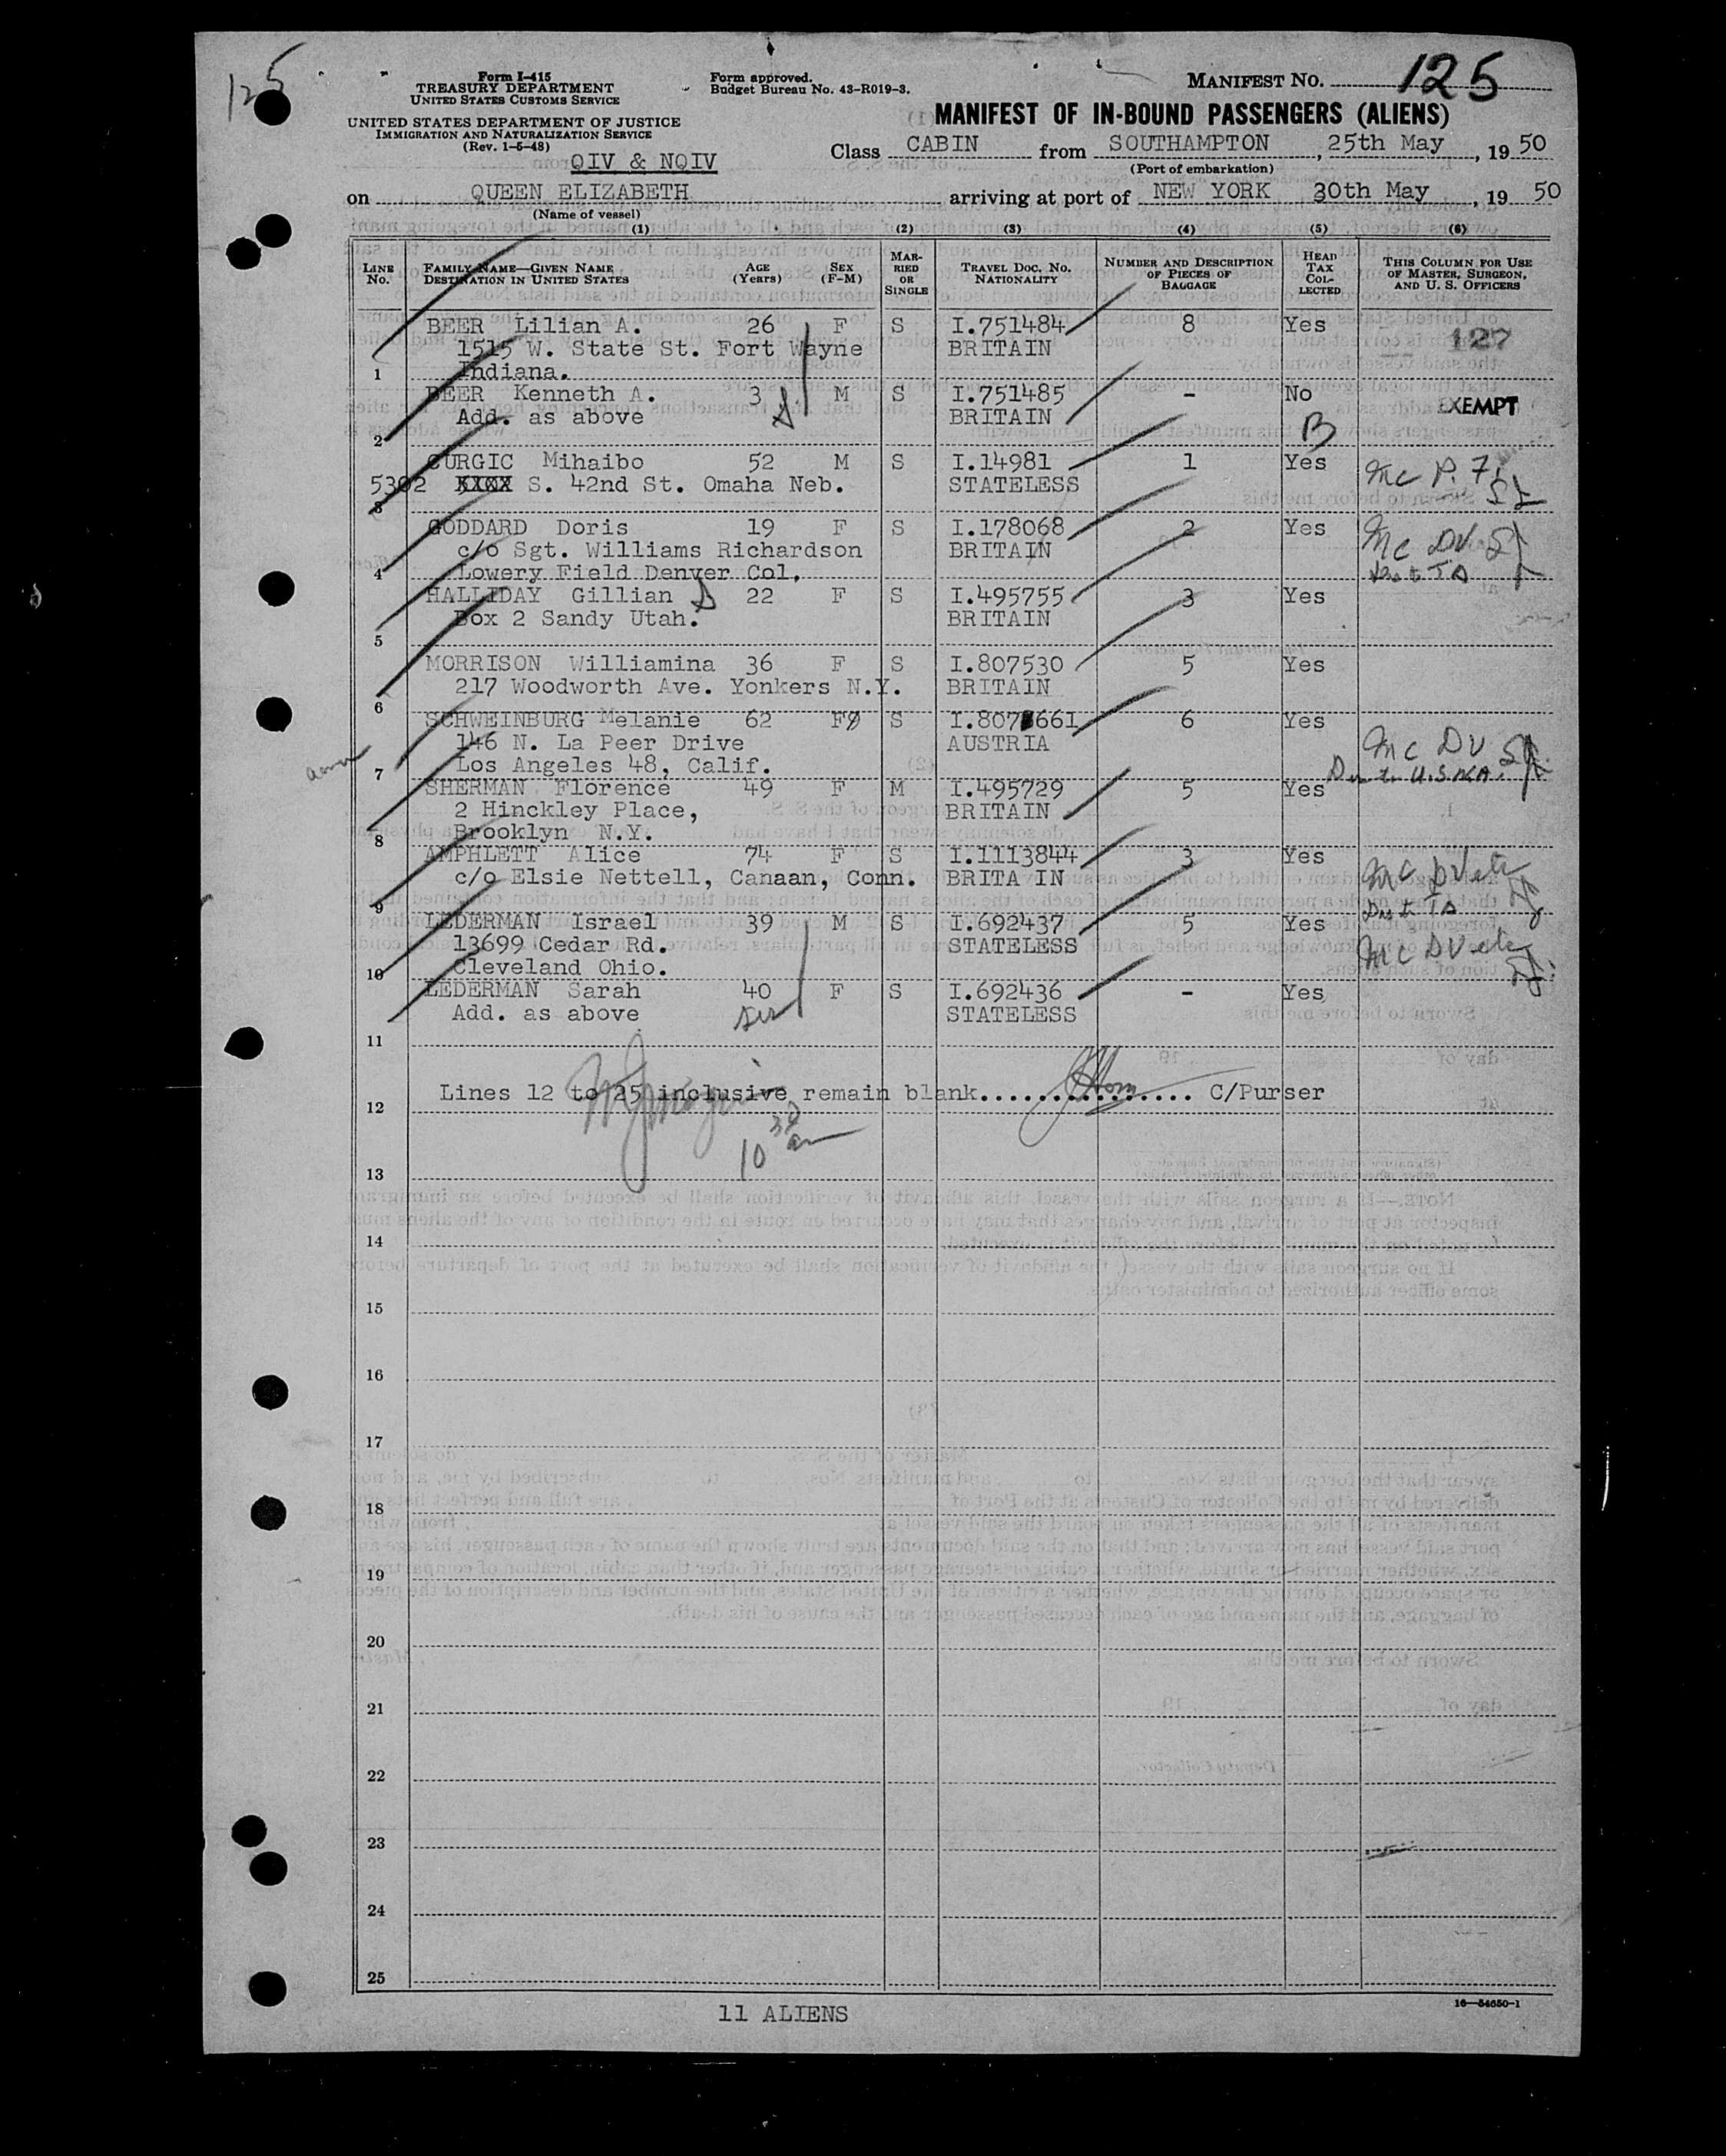 125
Form I-415
TREASURY DEPARTMENT
UNITED STATES CUSTOMS SERVICE
Form approved.
Budget Bureau No. 43-R019-3.
MANIFEST NO. 125
UNITED STATES DEPARTMENT OF JUSTICE
IMMIGRATION AND NATURALIZATION SERVICE
(Rev. 1-5-48)
MANIFEST OF IN-BOUND PASSENGERS (ALIENS)
QIV & NQIV
Class CABIN from SOUTHAMPTON, 25th May, 19 50
(Port of embarkation)
on QUEEN ELIZABETH arriving at port of NEW YORK 30th May, 19 50
(Name of vessel)
(1) (2) (3) (4) (5) (6)
LINE No. FAMILY NAME—GIVEN NAME DESTINATION IN UNITED STATES AGE (Years) SEX (F-M) MARRIED OR SINGLE TRAVEL DOC. NO. NATIONALITY NUMBER AND DESCRIPTION OF PIECES OF BAGGAGE HEAD TAX COLLECTED THIS COLUMN FOR USE OF MASTER, SURGEON, AND U. S. OFFICERS
BEER Lilian A. 26 F S I.751484 8 Yes
1515 W. State St. Fort Wayne BRITAIN 127
1 Indiana.
BEER Kenneth A. 3 M S I.751485 - No
Add. as above BRITAIN EXEMPT
2 B
CURGIC Mihaibo 52 M S I.14981 1 Yes
5302 XXXX S. 42nd St. Omaha Neb. STATELESS
3
GODDARD Doris 19 F S I.178068 2 Yes
c/o Sgt. Williams Richardson BRITAIN Mc DV
4 Lowery Field Denver Col,
HALLIDAY Gillian 22 F S I.495755 3 Yes
Box 2 Sandy Utah. BRITAIN
5
MORRISON Williamina 36 F S I.807530 5 Yes
217 Woodworth Ave. Yonkers N.Y. BRITAIN
6
SCHWEINBURG Melanie 62 F S 6 Yes
146 N. La Peer Drive AUSTRIA Mc DV
7 Los Angeles 48, Calif.
SHERMAN Florence 49 F M I.495729 5 Yes
2 Hinckley Place, BRITAIN
8 Brooklyn N.Y.
AMPHLETT Alice 74 F S I.1113844 3 Yes
c/o Elsie Nettell, Canaan, Conn. BRITA IN
9
LEDERMAN Israel 39 M S I.692437 5 Yes
13699 Cedar Rd. STATELESS
10 Cleveland Ohio.
LEDERMAN Sarah 40 F S I.692436 - Yes
Add. as above STATELESS
11
Lines 12 to 25 inclusive remain blank............... C/Purser
12
10 30 am
13
14
15
16
17
18
19
20
21
22
23
24
25
11 ALIENS
16—54650-1